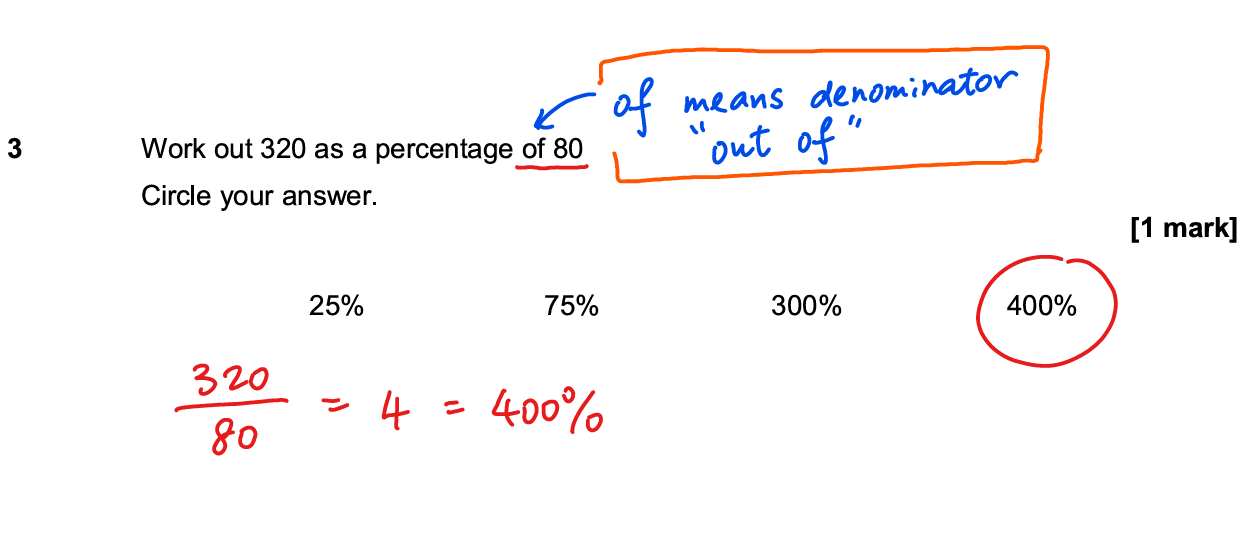 of means denominator
"out of"
3 Work out 320 as a percentage of 80
Circle your answer.
[1 mark]
25% 75% 300% 400%
320
80
= 4 = 400%